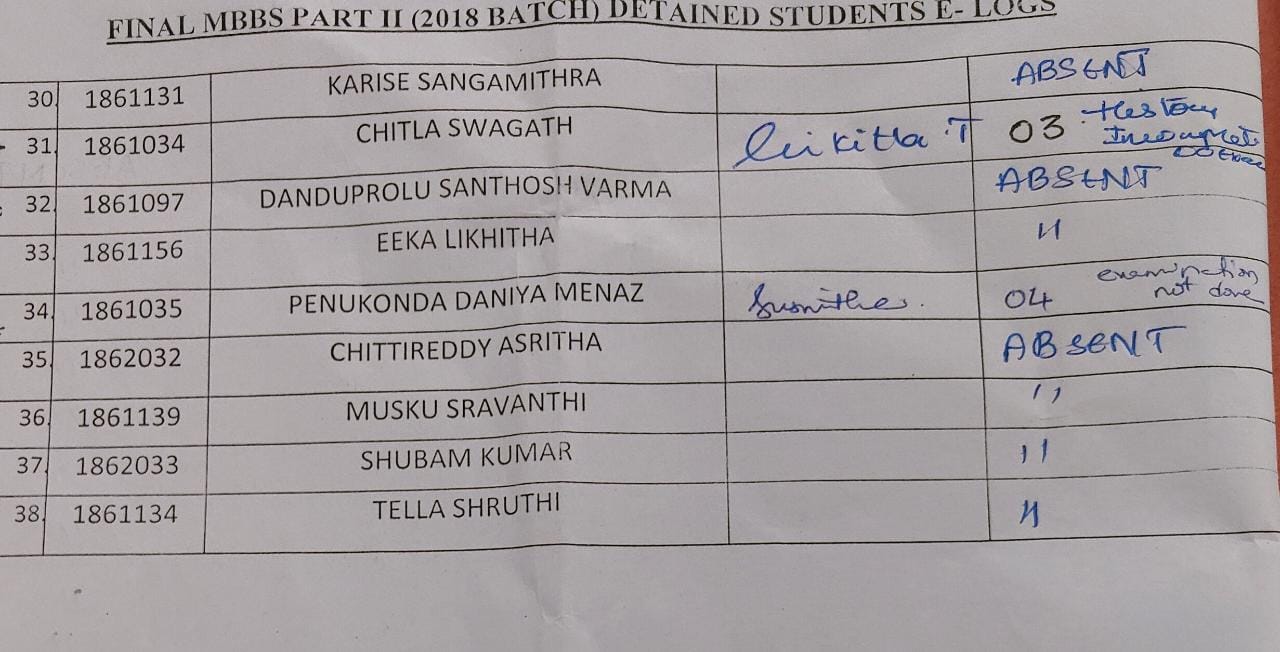 FINAL MBBS PART II (2018 BATCH) DETAINED STUDENTS E- LOGS
30. 1861131 KARISE SANGAMITHRA ABSENT
31. 1861034 CHITLA SWAGATH Likitha .T 03 History
Incomplete
32. 1861097 DANDUPROLU SANTHOSH VARMA ABSENT
33. 1861156 EEKA LIKHITHA "
34. 1861035 PENUKONDA DANIYA MENAZ Sunitha. 04 examination
not done
35. 1862032 CHITTIREDDY ASRITHA ABSENT
36. 1861139 MUSKU SRAVANTHI "
37. 1862033 SHUBAM KUMAR "
38. 1861134 TELLA SHRUTHI "